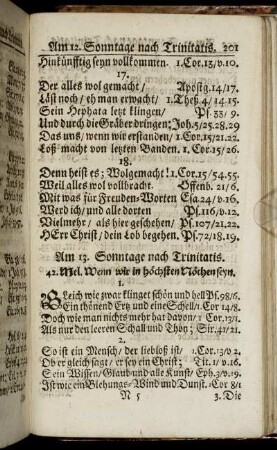 Am 12. Sonntage nach Trinitatis. 201
Hinkünfftig seyn vollkommen. 1.Cor.13/v.10.
17.
Der alles wol gemacht / Apostg.14/17.
Läst noch / eh man erwacht / 1.Theß.4/14.15.
Sein Hephata letzt klingen / Ps.33/9.
Und durch die Gräber dringen; Joh.5/25.28.29
Das uns / wenn wir erstanden / 1.Cor.15/21.22.
Loß macht von letzten Banden. 1.Cor.15/26.
18.
Denn heist es; Wolgemacht! 1.Cor.15/54.55.
Weil alles wol vollbracht. Offenb.21/6.
Mit was für Freuden-Worten Esa.24/v.16.
Werd ich / und alle dorten Ps.116/v.12.
Vielmehr / als hier geschehen / Ps.107/21.22.
HErr Christ / dein Lob begehen. Ps.72/18.19.
Am 13. Sonntage nach Trinitatis.
42. Mel. Wenn wir in höchsten Nöthen seyn.
1.
Gleich wie zwar klinget schön und hell Ps.98/6.
Ein thönend Ertz und eine Schell / 1.Cor 14/8.
Doch wie man nichts mehr hat davon / 1 Cor.13/1.
Als nur den leeren Schall und Thon; Sir.41/21.
2.
So ist ein Mensch / der liebloß ist / 1.Cor.13/v 2.
Ob er gleich sagt / er sey ein Christ; Tit.1/v.16.
Sein Wissen / Glaub und alle Kunst / Eph.3/v.19.
Ist wie ein Blehungs-Wind und Dunst. 1.Cor 8/1
N 5 3. Die